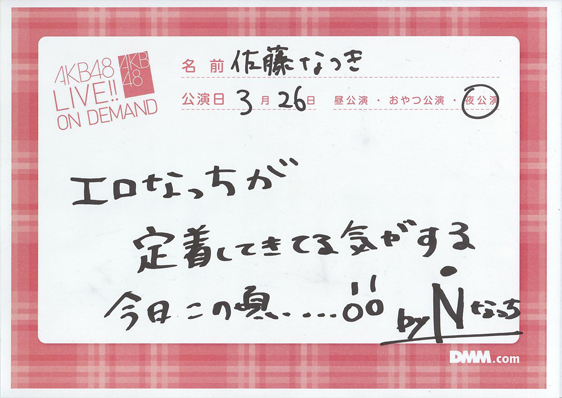 AKB48
LIVE!!
ON DEMAND
AKB
48
名 前 佐藤なつき
公演日 3月26日 昼公演・おやつ公演・夜公演
エロなっちが
定着してきてる気がする
今日この頃‥‥
by Nなっち
DMM.com